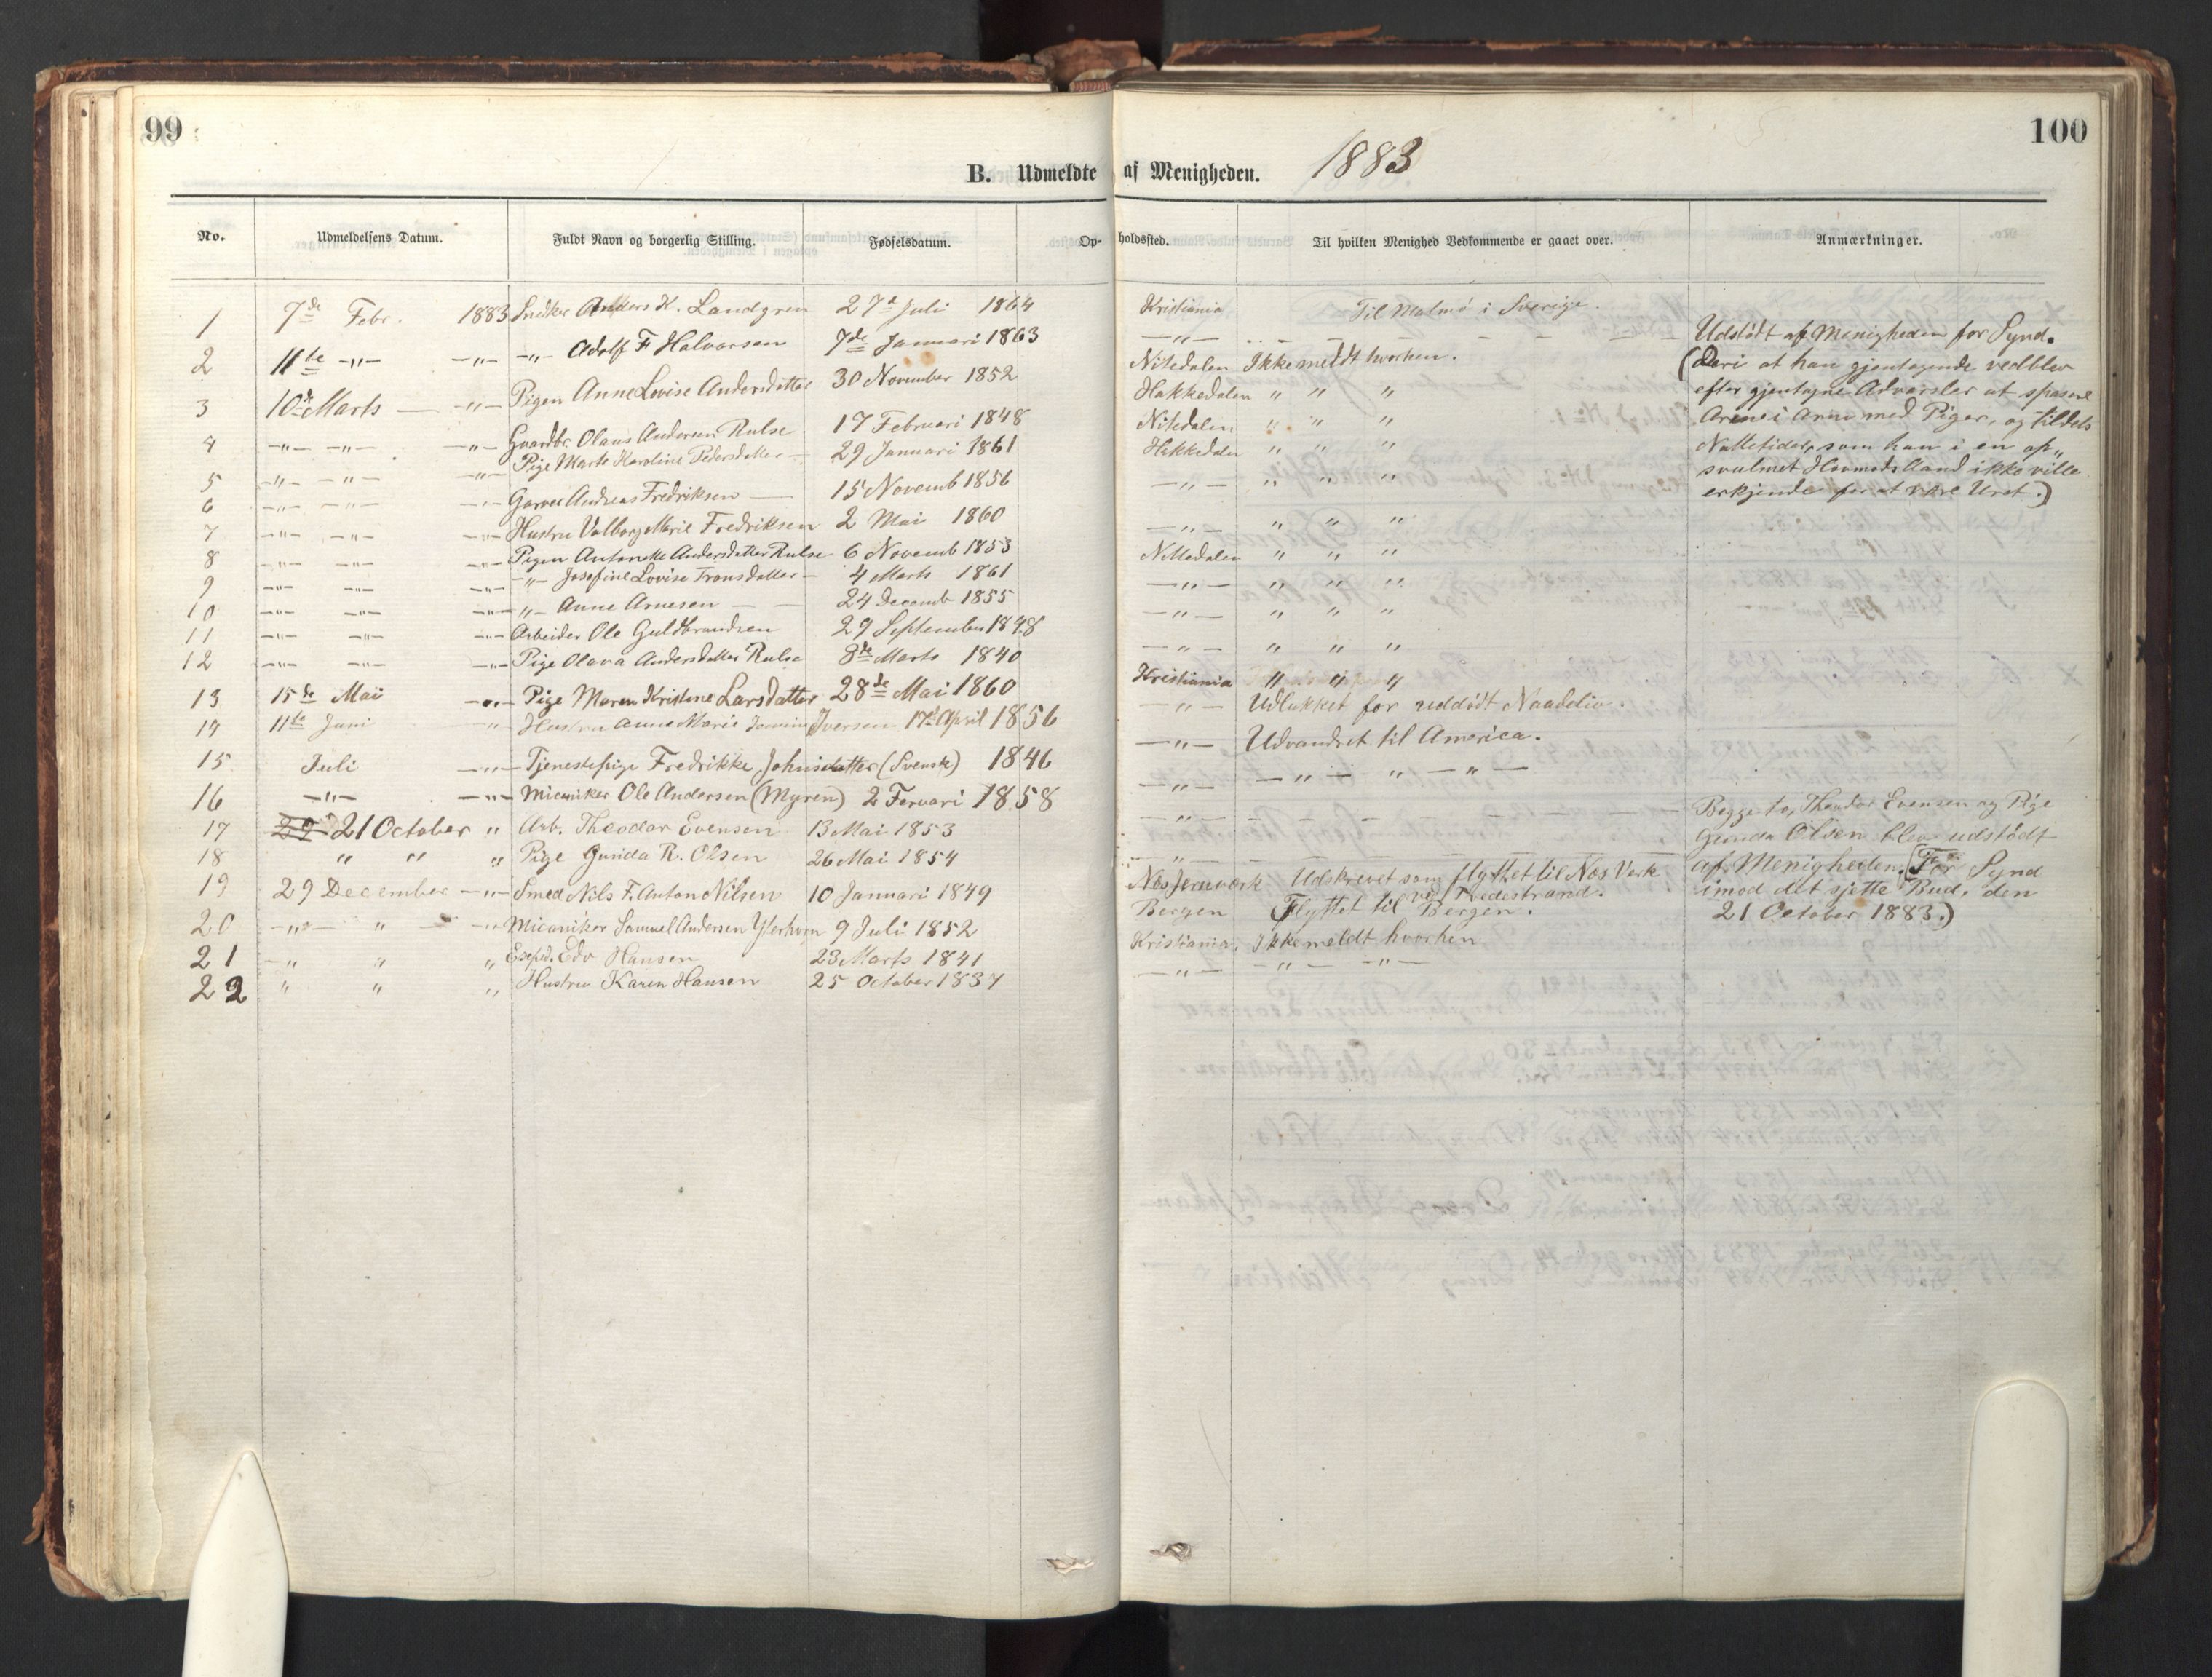 99
100
B. Udmeldte af Menigheden. 1883
No. Udmeldelsens Datum. Fuldt Navn og borgerlig Stilling. Fødselsdatum. Opholdssted. Til hvilken Menighed Vedkommende er gaaet over. Anmærkninger.
1 7de Febr. 1883 Snidker Anders K. Landgren 27de Juli 1864 Kristiania Til Malmø i Sverige.
2 11te -"- -"- -"- Adolf F Halvorsen 7de Januari 1863 -"-
3 10de Marts -"- Pigen Anne Lovise Andersdatter 30 November 1852 Nitedalen Ikke meldt hvorhen.
4 -"- -"- -"- Gaardbr. Olaus Andersen Rulse 17 Februari 1848 Hakkedalen " " "
5 -"- -"- -"- Pige Marte Karoline Pedersdatter 29 Januari 1861 Nitedalen " " "
6 -"- -"- -"- Garver Andreas Fredriksen 15 Novemb 1856 Hakkedalen " " "
7 -"- -"- -"- Hustru Valborg Marie Fredriksen 2 Mai 1860 -"- " " "
8 -"- -"- -"- Pigen Antonette Andersdatter Rulse 6 Novemb 1853 -"- " " "
9 -"- -"- -"- -"- Josefine Lovise Fransdatter 4 Marts 1861 Nittedalen " " "
10 -"- -"- -"- -"- Anne Arnesen 24 Decemb 1855 -"- " " "
11 -"- -"- -"- Arbeider Ole Guldbrandsen 29 September 1848 -"- " " "
12 -"- -"- -"- Pige Olava Andersdatter Rulse 8de Marts 1840 -"- " " "
13 15de Mai -"- Pige Maren Kristine Larsdatter 28de Mai 1860 Kristiania " " "
14 11te Juni -"- Hustru Anne Marie Iversen 17de April 1856 -"- Udlukket for uddødt Naadeliv.
15 Juli -"- Tjenestepige Fredrikke Johnsdatter (Svensk) 1846 -"- Udvandret til America.
16 -"- -"- Micaniker Ole Andersen (Myren) 2 Fervari 1858 -"- -"- -"- -"-
17 29 21 October " Arb. Theodor Evensen 13 Mai 1853 -"-
18 " " " Pige Gunda R. Olsen 26 Mai 1854 "
19 29 December -"- Smed Nils F. Anton Nilsen 10 Januari 1849 Næs Jernværk Udskrevet som flyttet til Næs Verk
ved Tvedestrand.
20 -"- " -"- Micaniker Samuel Andersen Yterhorn 9 Juli 1852 Bergen (Flyttet til Bergen.
21 -"- " " Edv Hansen 23 Marts 1841 Kristiania, Ikke meldt hvorhen
22 " " " Hustru Karen Hansen 25 October 1837 -"- -"- -"-
Udstødt af Menigheden for Synd.
(Deri at han gjentagende vedblev
efter gjentagne Advarsler at spasere
Arm i Arm med Piger, og tildels
Nattetider, som han i en op„
svulmet Hovmods Aand ikke ville
erkjende for at være Uret.)
Begge to, Theodor Evensen og Pige
Gunda Olsen blev udstødt
af Menigheden. (For Synd
imod det sjette Bud, den
21 October 1883.)